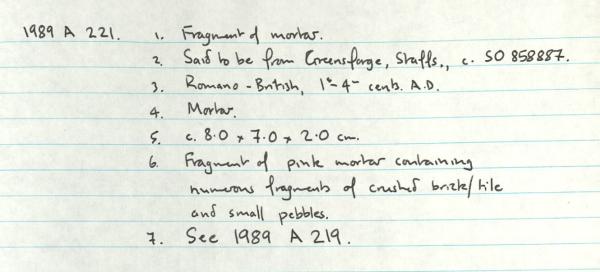 1989 A 221. 1. Fragment of mortar.
2. Said to be from Greensforge, Staffs., c. SO 858887.
3. Romano-British, 1st-4th cents. A.D.
4. Mortar.
5. c. 8.0 x 7.0 x 2.0 cm.
6. Fragment of pink mortar containing
numerous fragments of crushed brick/tile
and small pebbles.
7. See 1989 A 219.